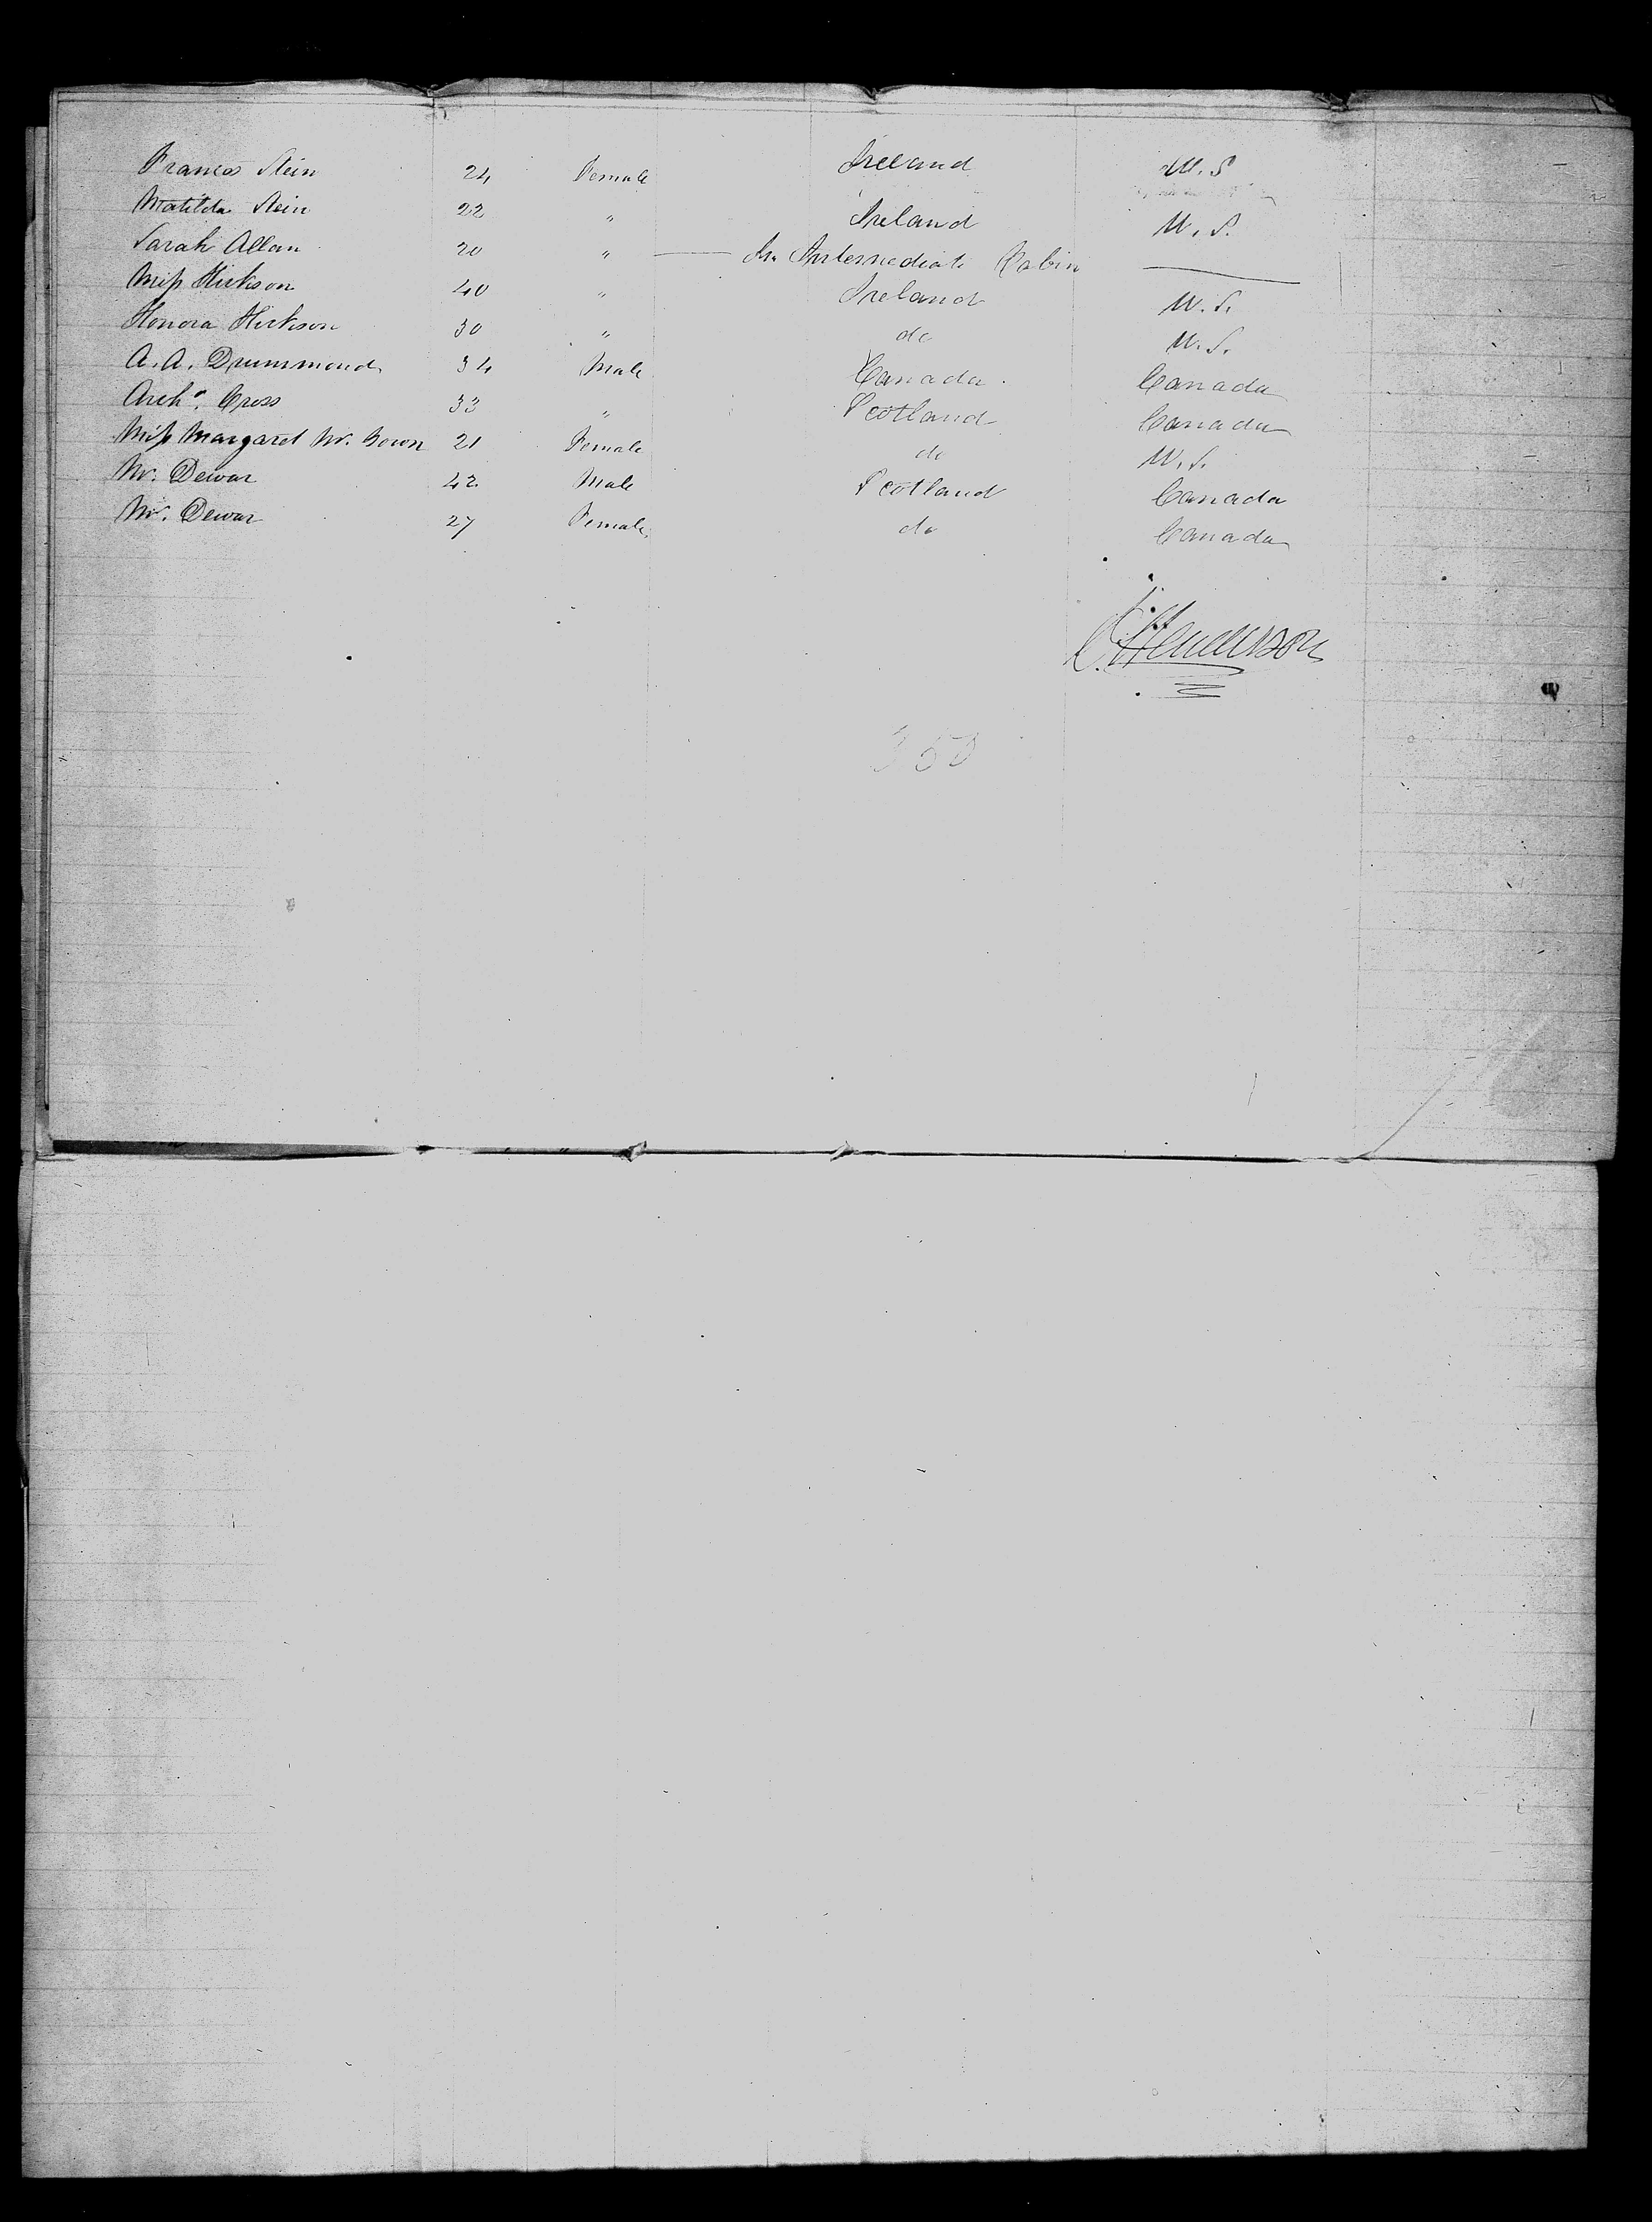 Frances Stein 24 Female Ireland U.S
Matilda Stein 22 " Ireland U.S.
Sarah Allan 20 " In Intermediate Cabin
Miss Hickson 40 " Ireland U.S.
Honora Hickson 30 " do U.S.
A. A. Drummond 34 Male Canada Canada
Archd. Cross 33 " Scotland Canada
Miss Margaret Mc. Gown 21 Female do U.S.
Mr. Dewar 42 Male Scotland Canada
Mrs. Dewar 27 Female do Canada
Henderson